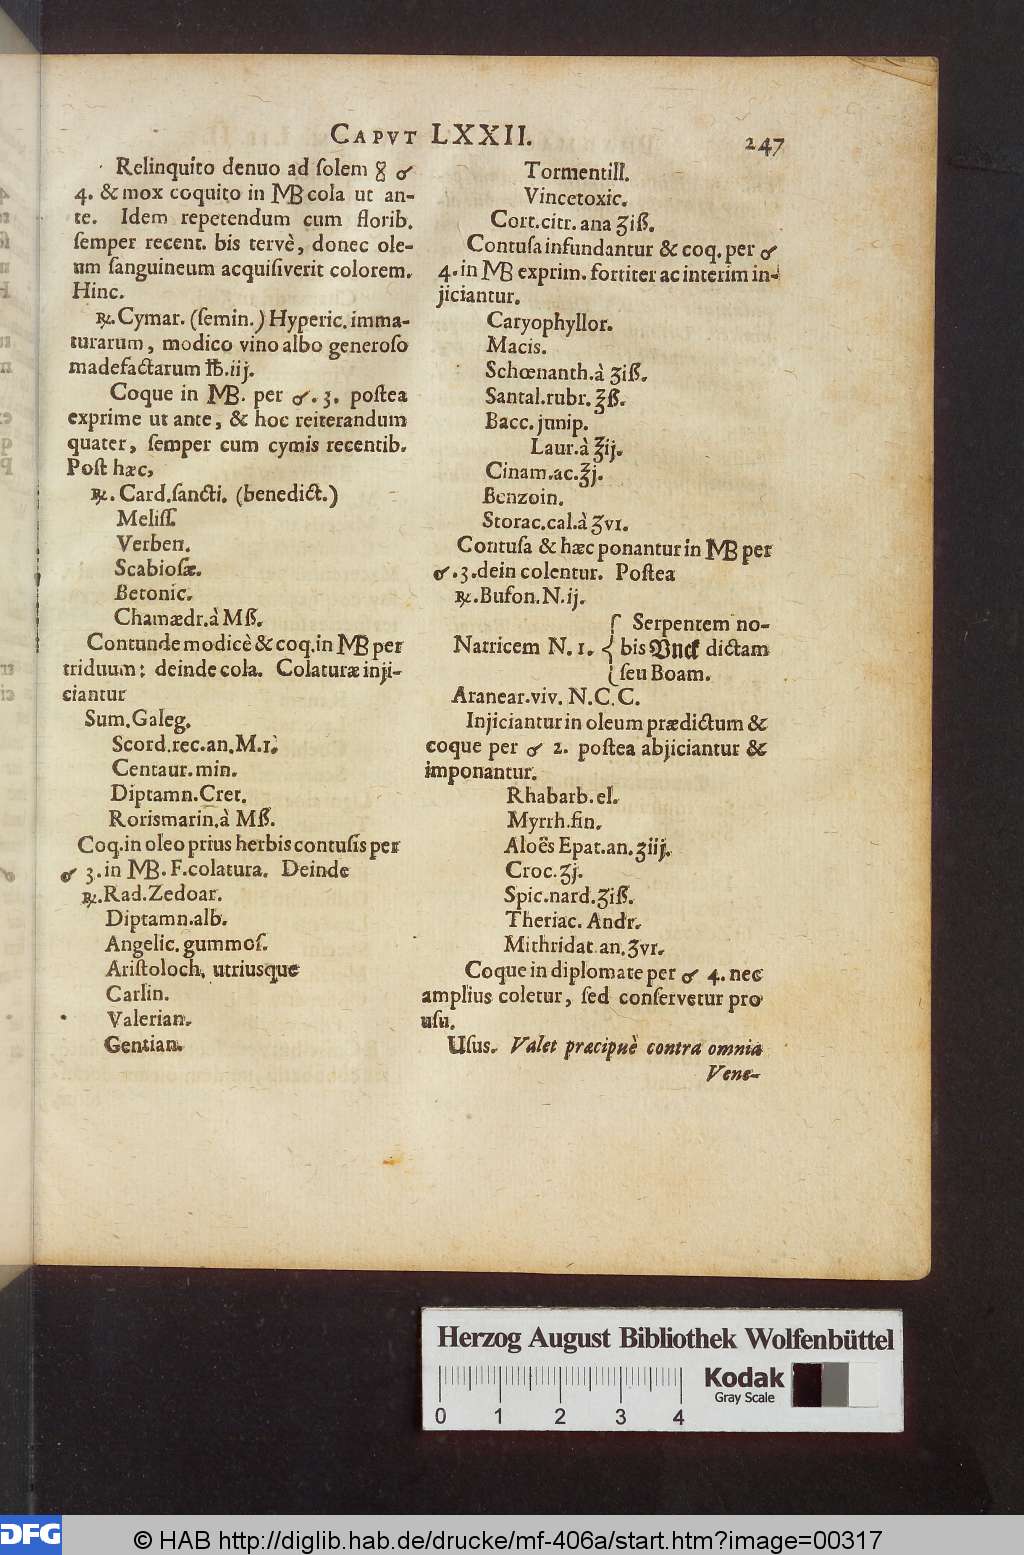 CAPVT LXXII. 247
Relinquito denuo ad ſolem 8 ♂
4. & mox coquito in MB cola ut an-
te. Idem repetendum cum florib.
ſemper recent. bis tervè, donec ole-
um ſanguineum acquiſiverit colorem.
Hinc.
℞. Cymar. (ſemin.) Hyperic. imma-
turarum, modico vino albo generoſo
madefactarum ℔. iij.
Coque in MB. per ♂. 3. poſtea
exprime ut ante, & hoc reiterandum
quater, ſemper cum cymis recentib.
Poſt hæc,
℞. Card. ſancti. (benedict.)
Meliſſ.
Verben.
Scabioſæ.
Betonic.
Chamædr. à Mß.
Contunde modicè & coq. in MB per
triduum: deinde cola. Colaturæ inji-
ciantur
Sum. Galeg.
Scord. rec. an. M. 1.
Centaur. min.
Diptamn. Cret.
Rorismarin. à Mß.
Coq. in oleo prius herbis contuſis per
♂ 3. in MB. F. colatura. Deinde
℞. Rad. Zedoar.
Diptamn. alb.
Angelic. gummoſ.
Ariſtoloch. utriusque
Carlin.
Valerian.
Gentian.
Tormentill.
Vincetoxic.
Cort. citr. ana ʒiß.
Contuſa infundantur & coq. per ♂
4. in MB exprim. fortiter ac interim in-
jiciantur.
Caryophyllor.
Macis.
Schœnanth. à ʒiß.
Santal. rubr. ℥ß.
Bacc. junip.
Laur. à ℥ij.
Cinam. ac. ℥j.
Benzoin.
Storac. cal. à ʒvi.
Contuſa & hæc ponantur in MB per
♂. 3. dein colentur. Poſtea
℞. Bufon. N. ij.
Natricem N. 1. { Serpentem no-
bis Unck dictam
ſeu Boam.
Aranear. viv. N. C. C.
Injiciantur in oleum prædictum &
coque per ♂ 2. poſtea abjiciantur &
imponantur.
Rhabarb. el.
Myrrh. fin.
Aloës Epat. an. ʒiij.
Croc. ʒj.
Spic. nard. ʒiß.
Theriac. Andr.
Mithridat. an. ʒvi.
Coque in diplomate per ♂ 4. nec
amplius coletur, ſed conſervetur pro
uſu.
Uſus. Valet præcipuè contra omnia
Vene-
Herzog August Bibliothek Wolfenbüttel
Kodak
Gray Scale
0 1 2 3 4
DFG
© HAB http://diglib.hab.de/drucke/mf-406a/start.htm?image=00317